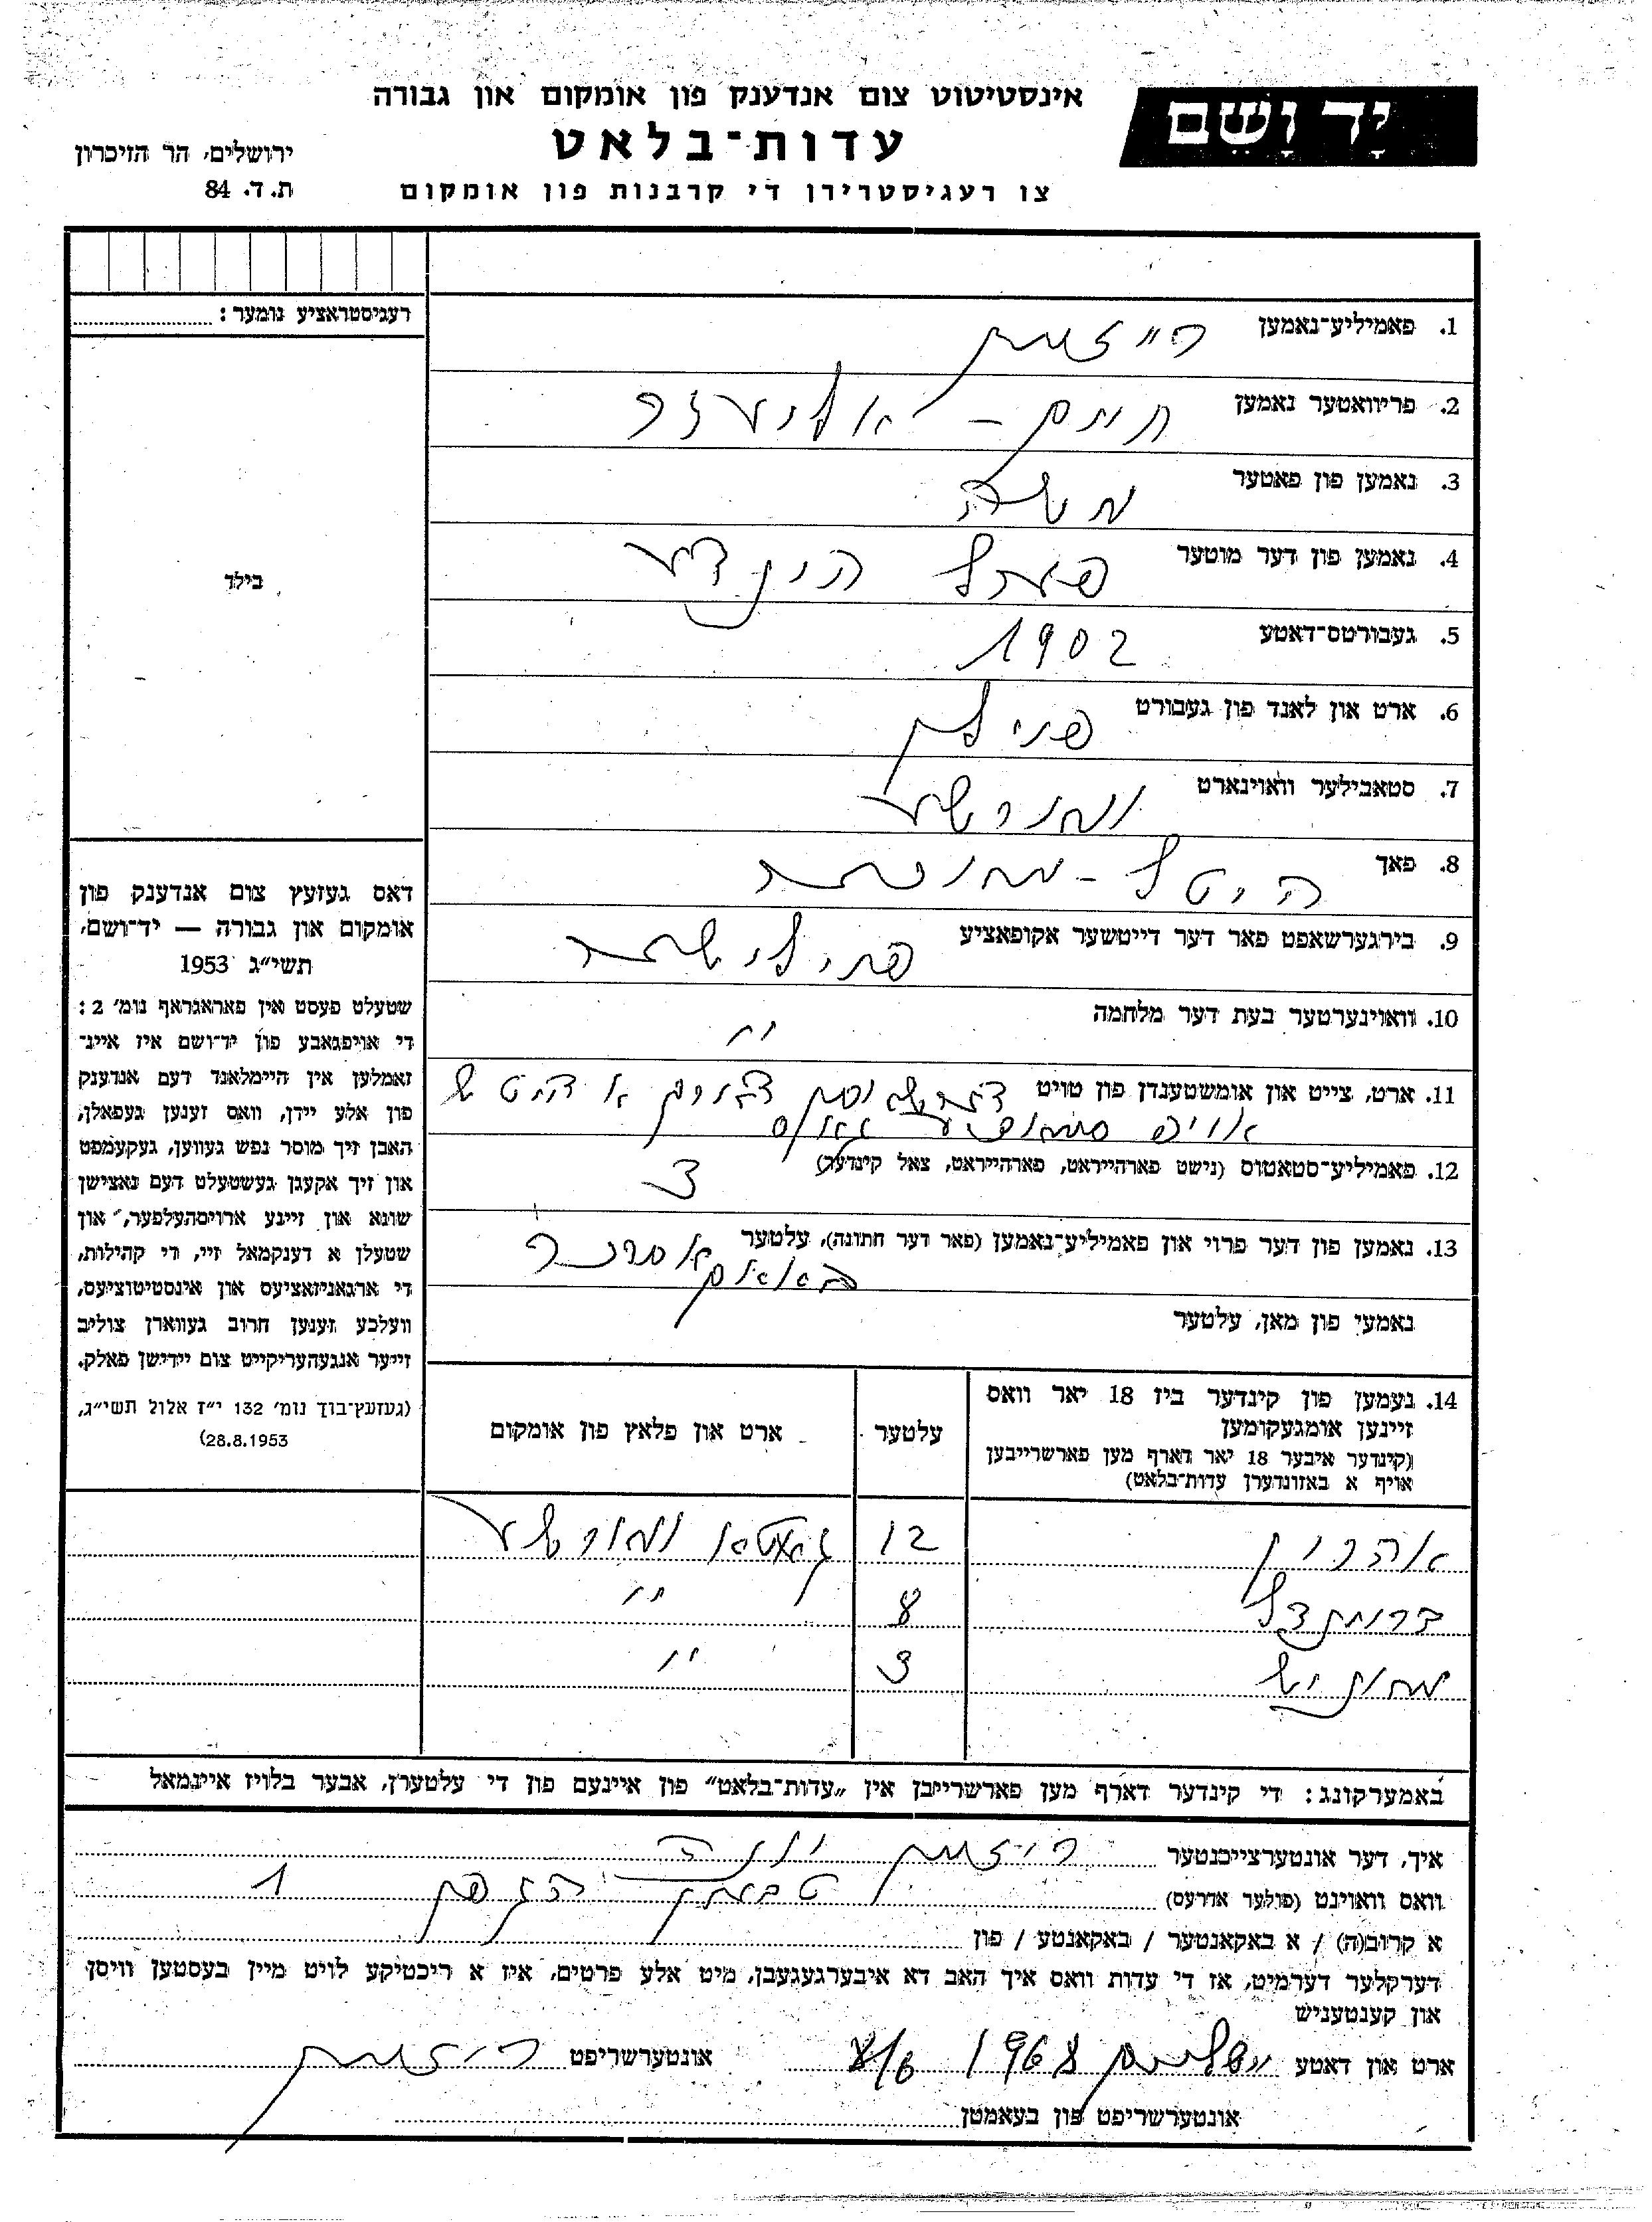 יָד וָשֵׁם
אינסטיטוט צום אנדענק פון אומקום און גבורה
עדות־בלאט
צו רעגיסטרירן די קרבנות פון אומקום
ירושלים, הר הזיכרון
ת. ד. 84
רעגיסטראציע נומער:
בילד
1. פאמיליע־נאמען
2. פריוואטער נאמען חיים - אליעזר
3. נאמען פון פאטער משה
4. נאמען פון דער מוטער פערל הינדע
5. געבורטס־דאטע 1902
6. ארט און לאנד פון געבורט פוילן
7. סטאבילער וואוינארט ווארשע
8. פאך היטל-מאכער
9. בירגערשאפט פאר דער דייטשער אקופאציע פוילישער
10. וואוינערטער בעת דער מלחמה "
11. ארט, צייט און אומשטענדן פון טויט דערשאסן
אויף גאס
12. פאמיליע־סטאטוס (נישט פארהייראט, פארהייראט, צאל קינדער) 3
13. נאמען פון דער פרוי און פאמיליע־נאמען (פאר דער חתונה), עלטער אסתר
נאמעי פון מאן, עלטער
דאס געזעץ צום אנדענק פון
אומקום און גבורה — יד־ושם,
תשי״ג 1953
שטעלט פעסט אין פאראגראף נומ׳ 2:
די אויפגאבע פון יד־ושם איז איינ־
זאמלען אין היימלאנד דעם אנדענק
פון אלע יידן, וואס זענען געפאלן,
האבן זיך מוסר נפש געווען, געקעמפט
און זיך אקעגן געשטעלט דעם נאצישן
שונא און זיינע ארויסהעלפער, און
שטעלן א דענקמאל זיי, די קהילות,
די ארגאניזאציעס און אינסטיטוציעס,
וועלכע זענען חרוב געווארן צוליב
זייער אנגעהעריקייט צום יידישן פאלק.
(געזעץ־בוך נומ׳ 132 י״ז אלול תשי״ג,
28.8.1953)
14. נעמען פון קינדער ביז 18 יאר וואס
זיינען אומגעקומען
(קינדער איבער 18 יאר דארף מען פארשרייבן
אויף א באזונדערן עדות־בלאט)
עלטער
ארט און פלאץ פון אומקום
אהרון 12 געטא ווארשע
8 "
3 "
באמערקונג: די קינדער דארף מען פארשרייבן אין „עדות־בלאט״ פון איינעם פון די עלטערן, אבער בלויז איינמאל
איך, דער אונטערצייכנטער יונה
וואס וואוינט (פולער אדרעס) הגפן 1
א קרוב(ה) / א באקאנטער / באקאנטע / פון
דערקלער דערמיט, אז די עדות וואס איך האב דא איבערגעגעבן, מיט אלע פרטים, איז א ריכטיקע לויט מיין בעסטען וויסן
און קענטעניש
ארט און דאטע 1968 אונטערשריפט
אונטערשריפט פון בעאמטן